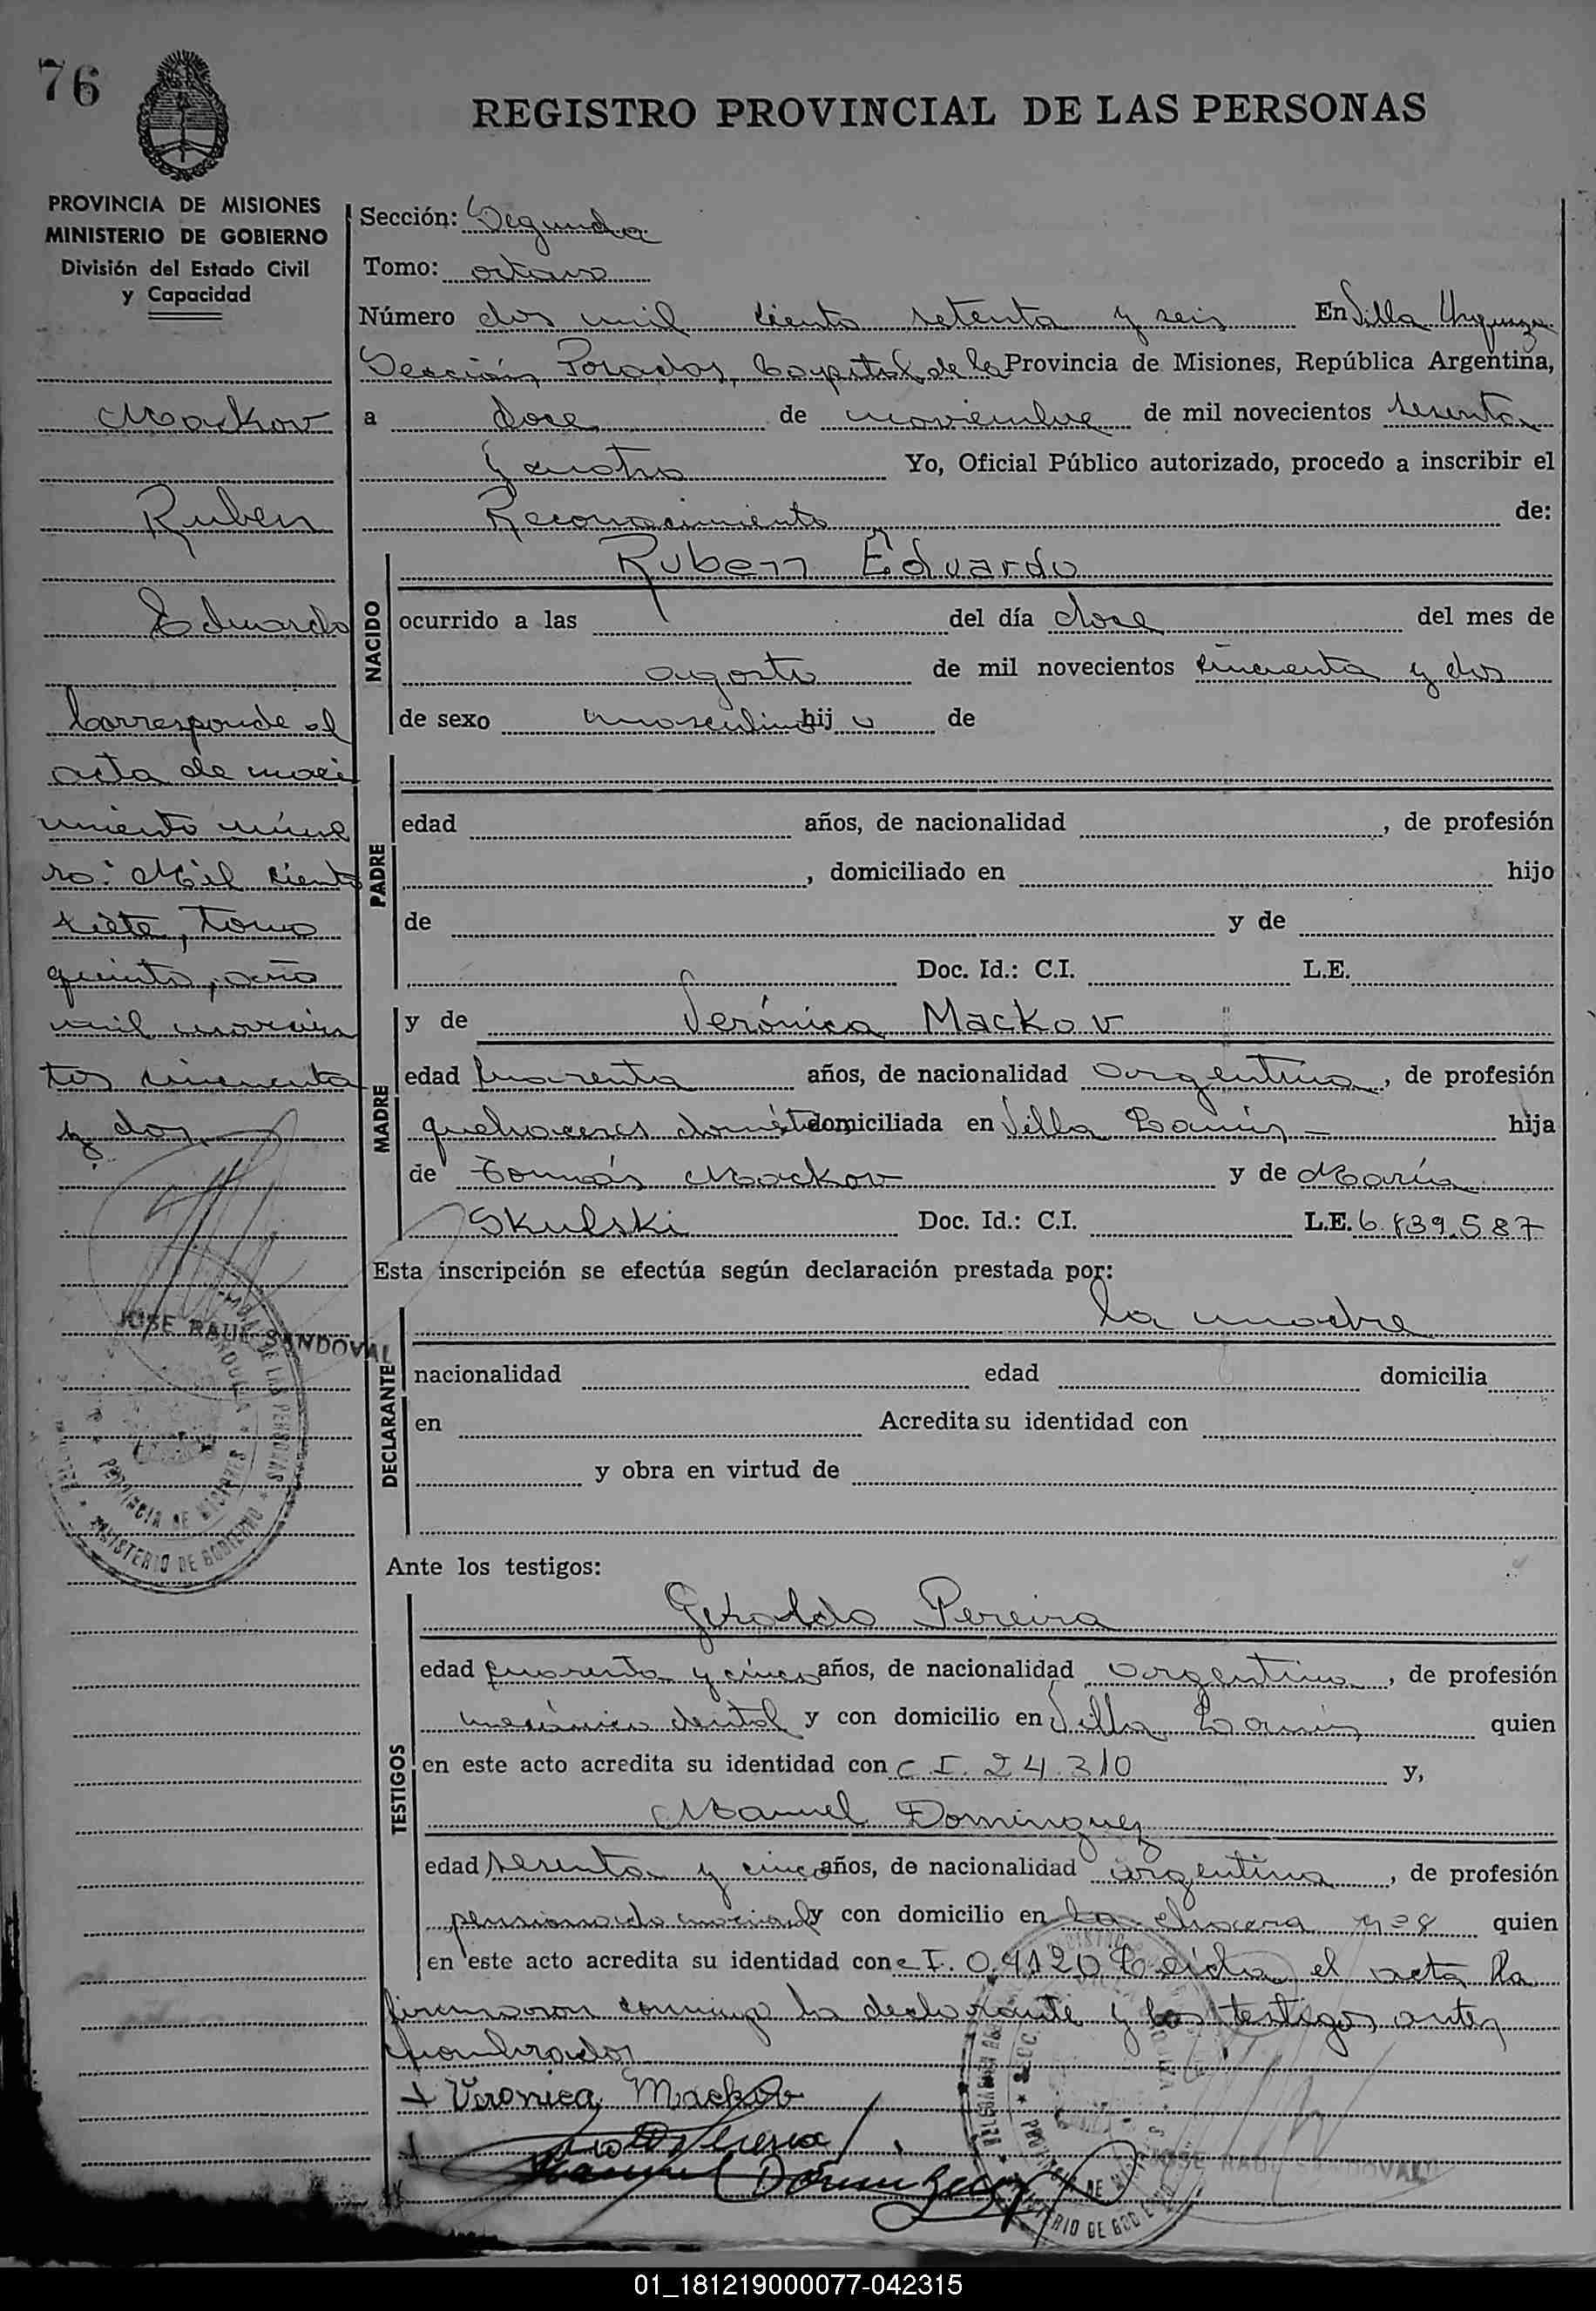 76
REGISTRO PROVINCIAL DE LAS PERSONAS
PROVINCIA DE MISIONES
MINISTERIO DE GOBIERNO
División del Estado Civil
y Capacidad
Mackov
Ruben
Eduardo
Corresponde al
acta de naci
miento núme
ro: Mil ciento
siete, tomo
quinto, año
mil novecien
tos cincuenta
y dos
JOSE RAUL SANDOVAL
PROVINCIA DE MISIONES
MINISTERIO DE GOBIERNO
Sección: Segunda
Tomo: octavo
Número dos mil ciento setenta y seis En Villa Urquiza
Sección Posadas, Capital de la Provincia de Misiones, República Argentina,
a doce de noviembre de mil novecientos sesenta
y cuatro Yo, Oficial Público autorizado, procedo a inscribir el
Reconocimiento de:
NACIDO
Ruben Eduardo
ocurrido a las del día doce del mes de
agosto de mil novecientos cincuenta y dos
de sexo masculino hijo de
PADRE
edad años, de nacionalidad , de profesión
, domiciliado en hijo
de y de
Doc. Id.: C.I. L.E.
MADRE
y de Verónica Mackov
edad cuarenta años, de nacionalidad argentina, de profesión
quehaceres domésticos domiciliada en Villa Lanús hija
de Tomás Mackov y de María
Skulski Doc. Id.: C.I. L.E. 6.839.587
Esta inscripción se efectúa según declaración prestada por:
DECLARANTE
la madre
nacionalidad edad domicilia
en Acredita su identidad con
y obra en virtud de
Ante los testigos:
TESTIGOS
Geraldo Pereira
edad cuarenta y cinco años, de nacionalidad argentina, de profesión
mecánico dental y con domicilio en Villa Lanús quien
en este acto acredita su identidad con C.I. 24.310 y,
Manuel Dominguez
edad sesenta y cinco años, de nacionalidad argentina, de profesión
pensionado y con domicilio en La chacra nº 8 quien
en este acto acredita su identidad con C I. Leida el acta la
firmaron conmigo la declarante y los testigos antes
nombrados
Veronica Mackov
Pereira
Manuel Dominguez
JOSE RAUL SANDOVAL
01_181219000077-042315